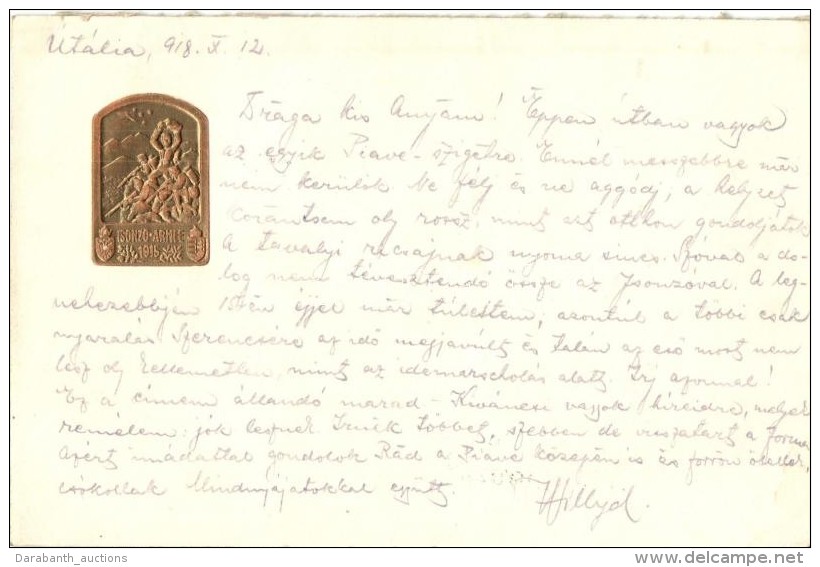 Útália, 918. X. 12.
Drága kis Anyám! Éppen útban vagyok
az egyik Piave-szigetre. Ennél messzebbre már
nem kerülök. Ne félj és ne aggódj, a helyzet
korántsem oly rossz, mint azt otthon gondoljátok
A tavalyi recsajnak nyoma sincs. Szóval a do-
log nem tévesztendő össze az Isonzóval. A leg-
nehezebbjén 15-én éjjel már túlestem, azontúl a többi csak
nyaralás. Szerencsére az idő megjavult és talán az eső most nem
lesz oly kellemetlen, mint az idemarsolás alatt. Írj azonnal!
Ez a címem állandó marad - Kiváncsi vagyok híreidre, melyek
remélem: jók lesznek. Irnék többet, szebben de visszatart a forma
Azért imádattal gondolok Rád a Piave közepén is és forrón ölellek,
csókollak Mindnyájatokkal együtt.
Willyd.
ISONZO-ARMEE
1915
Darabanth_auctions
www.delcampe.net